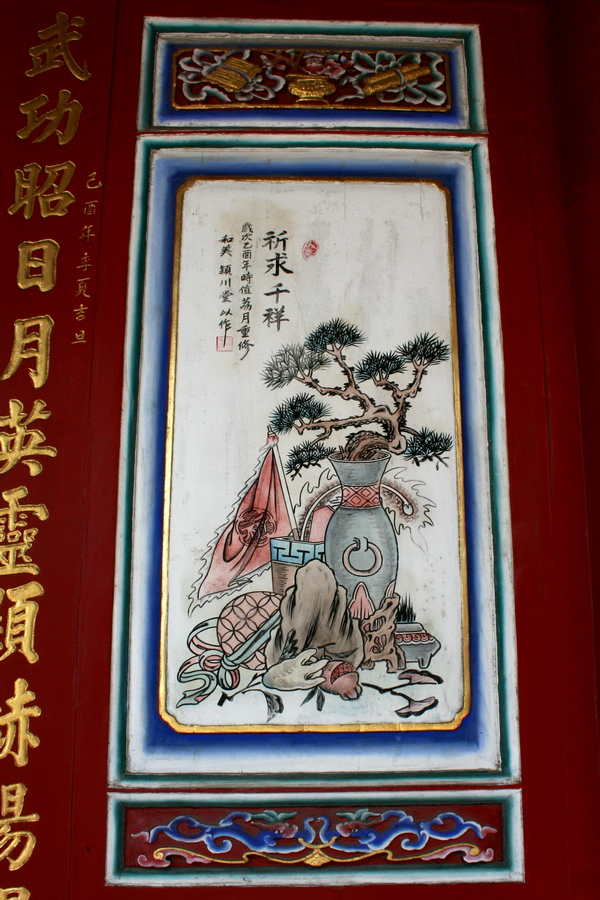 祈求千祥
歲次乙酉年時值荔月重修
和美 穎川堂 以作
己酉年季夏吉旦
武功昭日月英靈顯赫揚